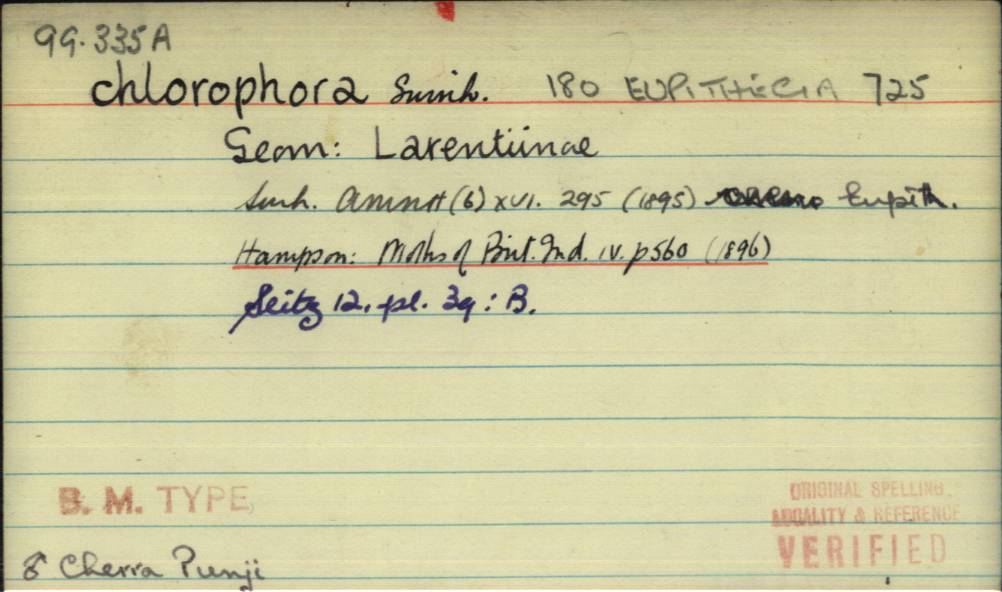 99.335A
chlorophora Swinh. 180 EUPITHECIA 725
Geom: Larentiinae
Swh. AMNH (6) XVI. 295 (1895) Eupith.
Hampson: Moths of Brit. Ind. IV. p560 (1896)
Seitz 12, pl. 39: B.
B. M. TYPE
ORIGINAL SPELLING.
LOCALITY & REFERENCE
VERIFIED
♂ Cherra Punji